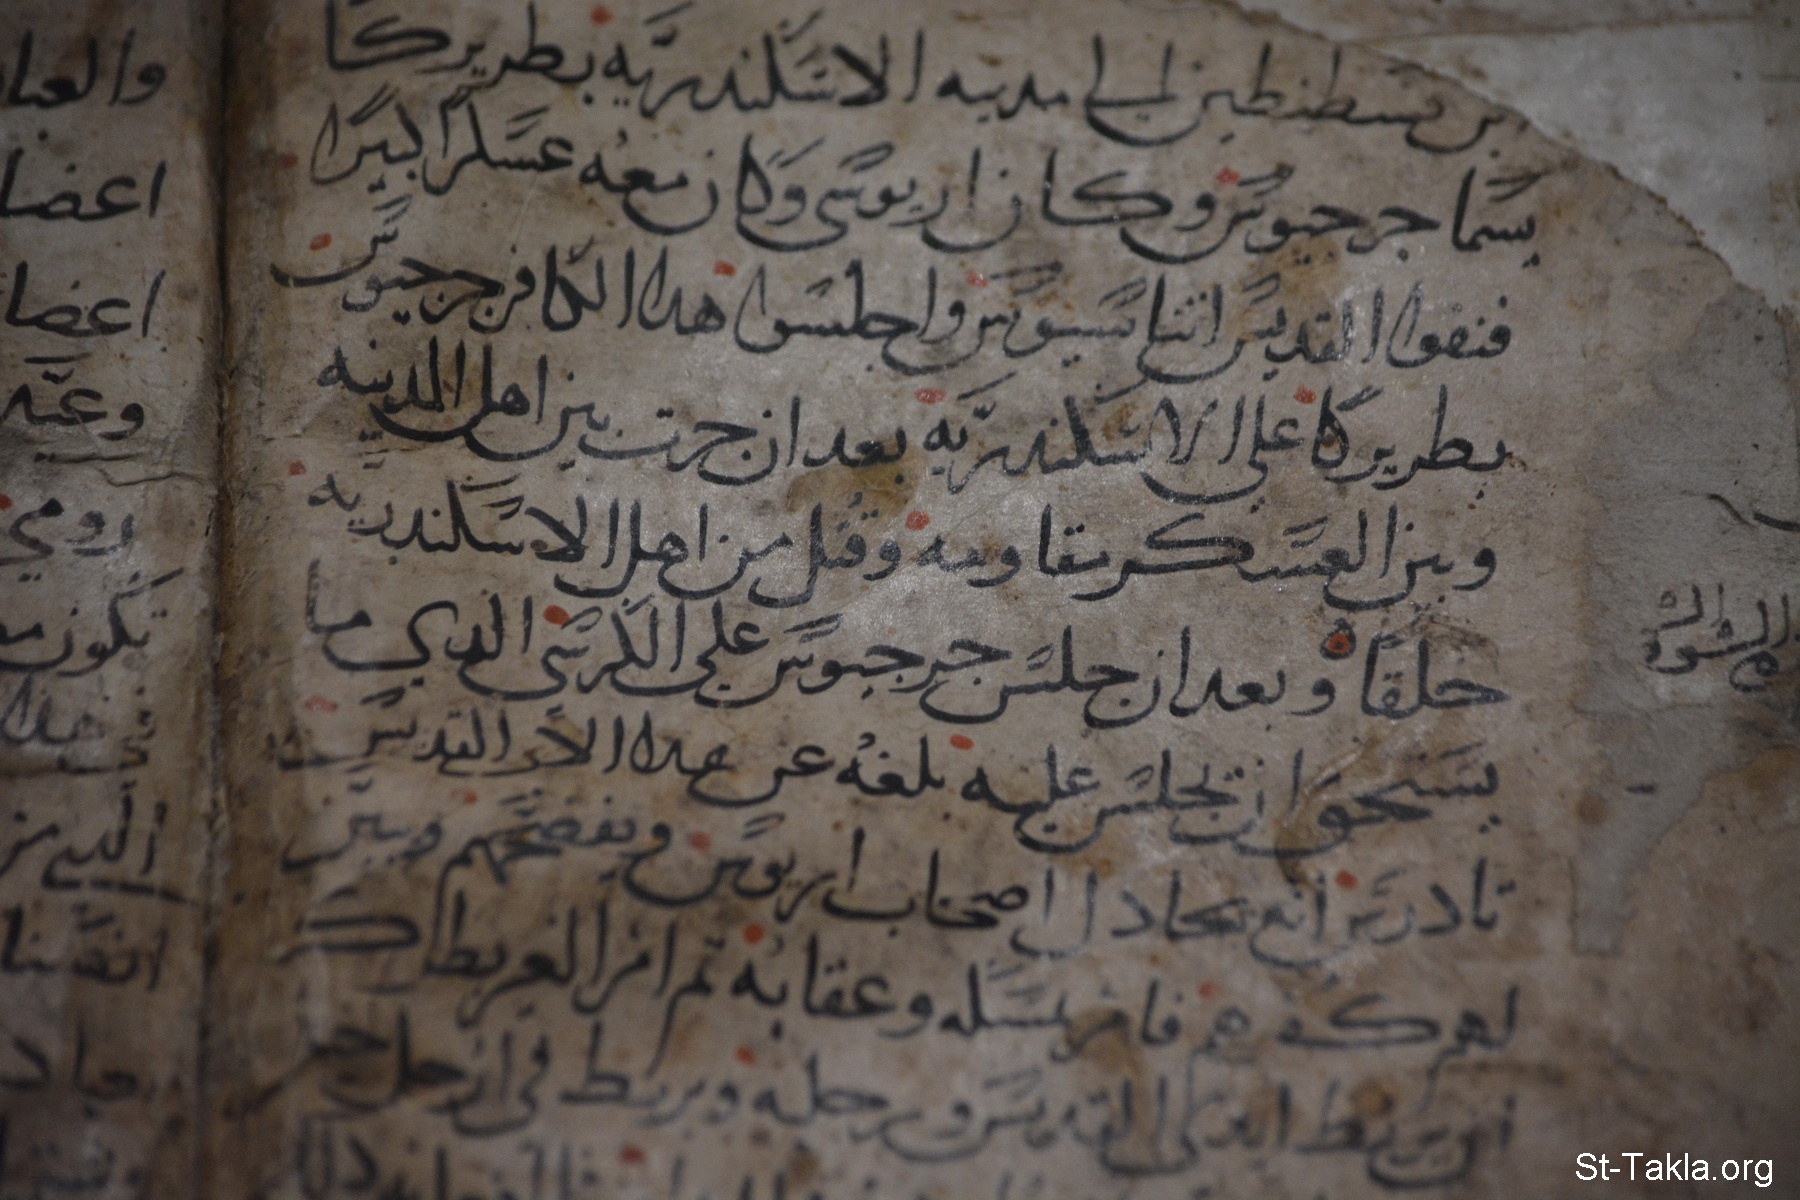 بن قسطنطين الي مدينه الاسكندريه بطريركا
يسما جرجيوس وكان اريوسى وكان معه عسكرا كبيرا
فنفوا القديس اتناسيوس واجلسوا هدا الكافر جرجيوس
بطريركا على الاسكندريه بعد ان جرت بين اهل المدينه
وبين العسكر مقاومه وقتل من اهل الاسكندريه
خلقا وبعد ان جلس جرجيوس على الكرسي الدي ما
يستحق ان يجلس عليه بلغه عن هدا الاب القديس
تادرس انه يجادل اصحاب اريوس ويفضحهم ويبين
لهم كفرهم فامر بمسكه وعقابه تم امر ان يربط
ايدي القديس ورجليه ويربط في ارجل
والعبا
اعضا
اعضا
وعند
رومي
تكون
هدا
التي
انفسنا
St-Takla.org